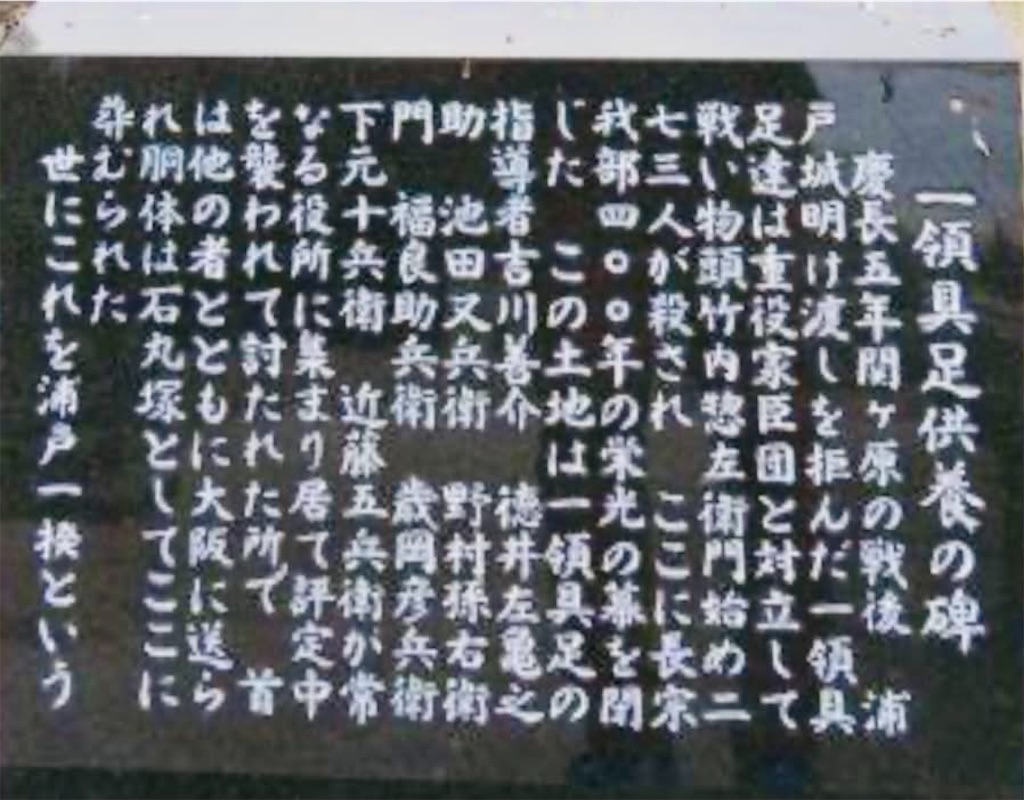 一領具足供養の碑
慶長五年関ヶ原の戦後 浦
戸城明け渡しを拒んだ一領具
足達は重役家臣団と対立して
戦い物頭竹内惣左衛門始め二
七三人が殺され ここに長宗
我部四〇〇年の栄光の幕を閉
じた この土地は一領具足の
指導者吉川善介 徳井左亀之
助 池田又兵衛 野村孫右衛
門 福良助兵衛 歳岡彦兵衛
下元十兵衛 近藤五兵衛が常
なる役所に集まり居て評定中
を襲われて討たれた所で 首
は他の者とともに大阪に送ら
れ胴体は石丸塚としてここに
葬むられた
世にこれを浦戸一揆という